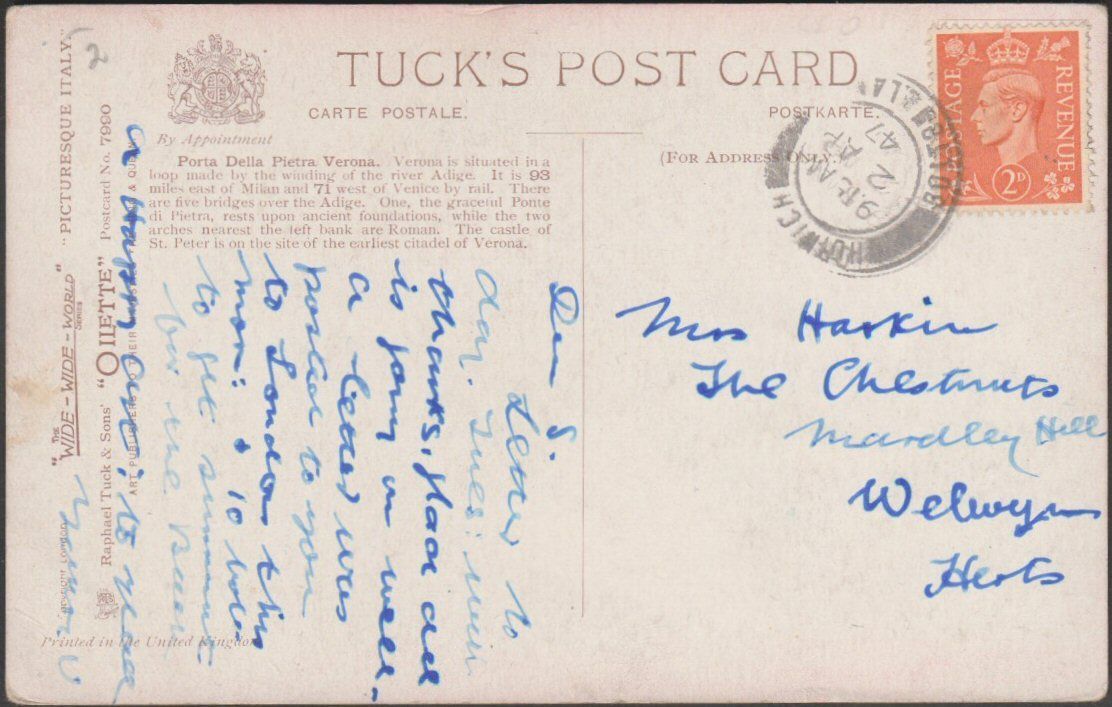 TUCK'S POST CARD
CARTE POSTALE.
POSTKARTE.
By Appointment
(FOR ADDRESS ONLY.)
Porta Della Pietra Verona. Verona is situated in a
loop made by the winding of the river Adige. It is 93
miles east of Milan and 71 west of Venice by rail. There
are five bridges over the Adige. One, the graceful Ponte
di Pietra, rests upon ancient foundations, while the two
arches nearest the left bank are Roman. The castle of
St. Peter is on the site of the earliest citadel of Verona.
"PICTURESQUE ITALY."
THE "WIDE-WIDE-WORLD" SERIES
Raphael Tuck & Sons' "OILETTE" Postcard No. 7990
ART PUBLISHERS TO THEIR MAJESTIES THE KING & QUEEN
Copyright London
Printed in the United Kingdom
POSTAGE
REVENUE
2D
HORWICH
BOLTON
2 AR
47
2
Dear S.
Letter to
day. Tues:
thanks, glad all
is going on well.
a letter was
posted to you
to London this
morn: & 10
to get
Mrs Harkin
The Chestnuts
Mardley Hill
Welwyn
Herts